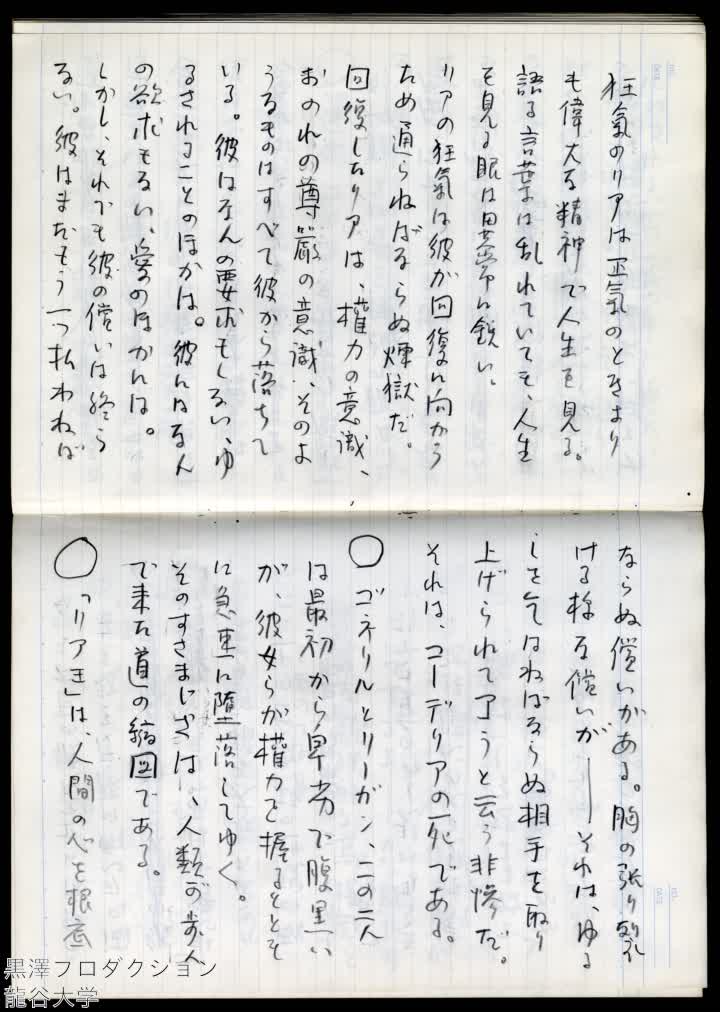 狂氣のリアは正氣のときより
も偉大な精神で人生を見る。
語る言葉は乱れていても、人生
を見る眼は異常に鋭い。
リアの狂氣は彼が回復に向から
ため通らねばならぬ煉獄だ。
回復したリアは、權力の意識、
おのれの尊嚴の意識、そのよ
うなものはすべて彼から落ちて
いる。彼はなんの要求もしない、ゆ
るされることのほかは。彼にはなん
の欲求もない、愛のほかには。
しかし、それでも彼の償いは終ら
ない。彼はまだもう一つ払わねば
ならぬ償いがある。胸の張り裂
ける様な償いが――それは、ゆる
しを乞はねばならぬ相手を取り
上げられて了うと云う非惨だ。
それは、コーデリアの死である。
○ ゴネリルとリーガン、この二人
は最初から卑劣で腹黒い
が、彼女らが權力を握るととも
に急速に墮落してゆく。
そのすさまじさは、人類が歩ん
で来た道の縮図である。
○ 「リア王」は、人間の心を根底
黒澤プロダクション
龍谷大学